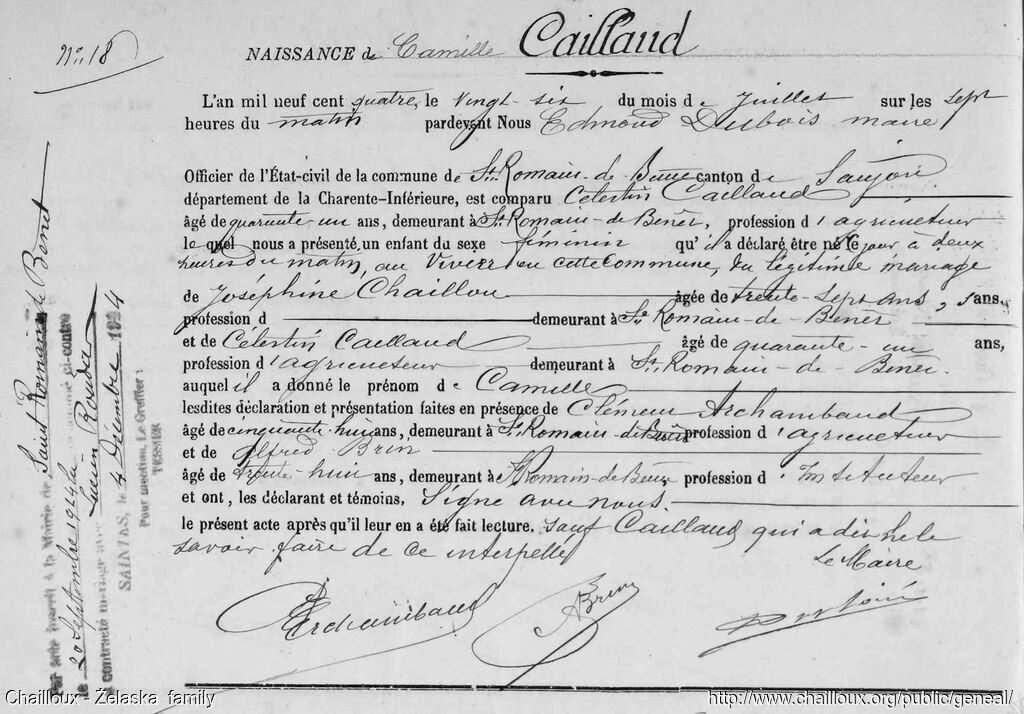 No 18
NAISSANCE de Camille Caillaud
L'an mil neuf cent quatre, le vingt-six du mois de Juillet sur les sept
heures du matin pardevant Nous Edmond Dubois maire
Officier de l'État-civil de la commune de St Romain-de-Benêt canton de Saujon
département de la Charente-Inférieure, est comparu Célestin Caillaud
âgé de quarante-un ans, demeurant à St Romain-de-Benêt, profession d'agriculteur
lequel nous a présenté un enfant du sexe féminin qu'il a déclaré être né ce jour à deux
heures du matin, au Viver en cette commune, du légitime mariage
de Joséphine Chaillou âgée de trente-sept ans, ans,
profession d demeurant à St Romain-de-Benêt
et de Célestin Caillaud âgé de quarante-un ans,
profession d'agriculteur demeurant à St Romain-de-Benêt.
auquel il a donné le prénom de Camille
lesdites déclaration et présentation faites en présence de Clément Archambaud
âgé de cinquante-huit ans, demeurant à St Romain-de-Benêt profession d'agriculteur
et de Alfred Brin
âgé de trente-huit ans, demeurant à St Romain-de-Benêt profession d'Instituteur
et ont, les déclarant et témoins, signé avec nous.
le présent acte après qu'il leur en a été fait lecture. sauf Caillaud qui a dit ne le
savoir faire de ce interpellé
Le Maire
Archambaud
ABrin
Dubois
Par acte inscrit à la Mairie de Saint Romain de Benet
le 20 Septembre 1924 la ci-contre
a contracté mariage avec Lucien Rouda
SAINTES, le 4 Décembre 1924
Pour mention, Le Greffier:
TESSIER
Chailloux - Żelaska family
http://www.chailloux.org/public/geneal/